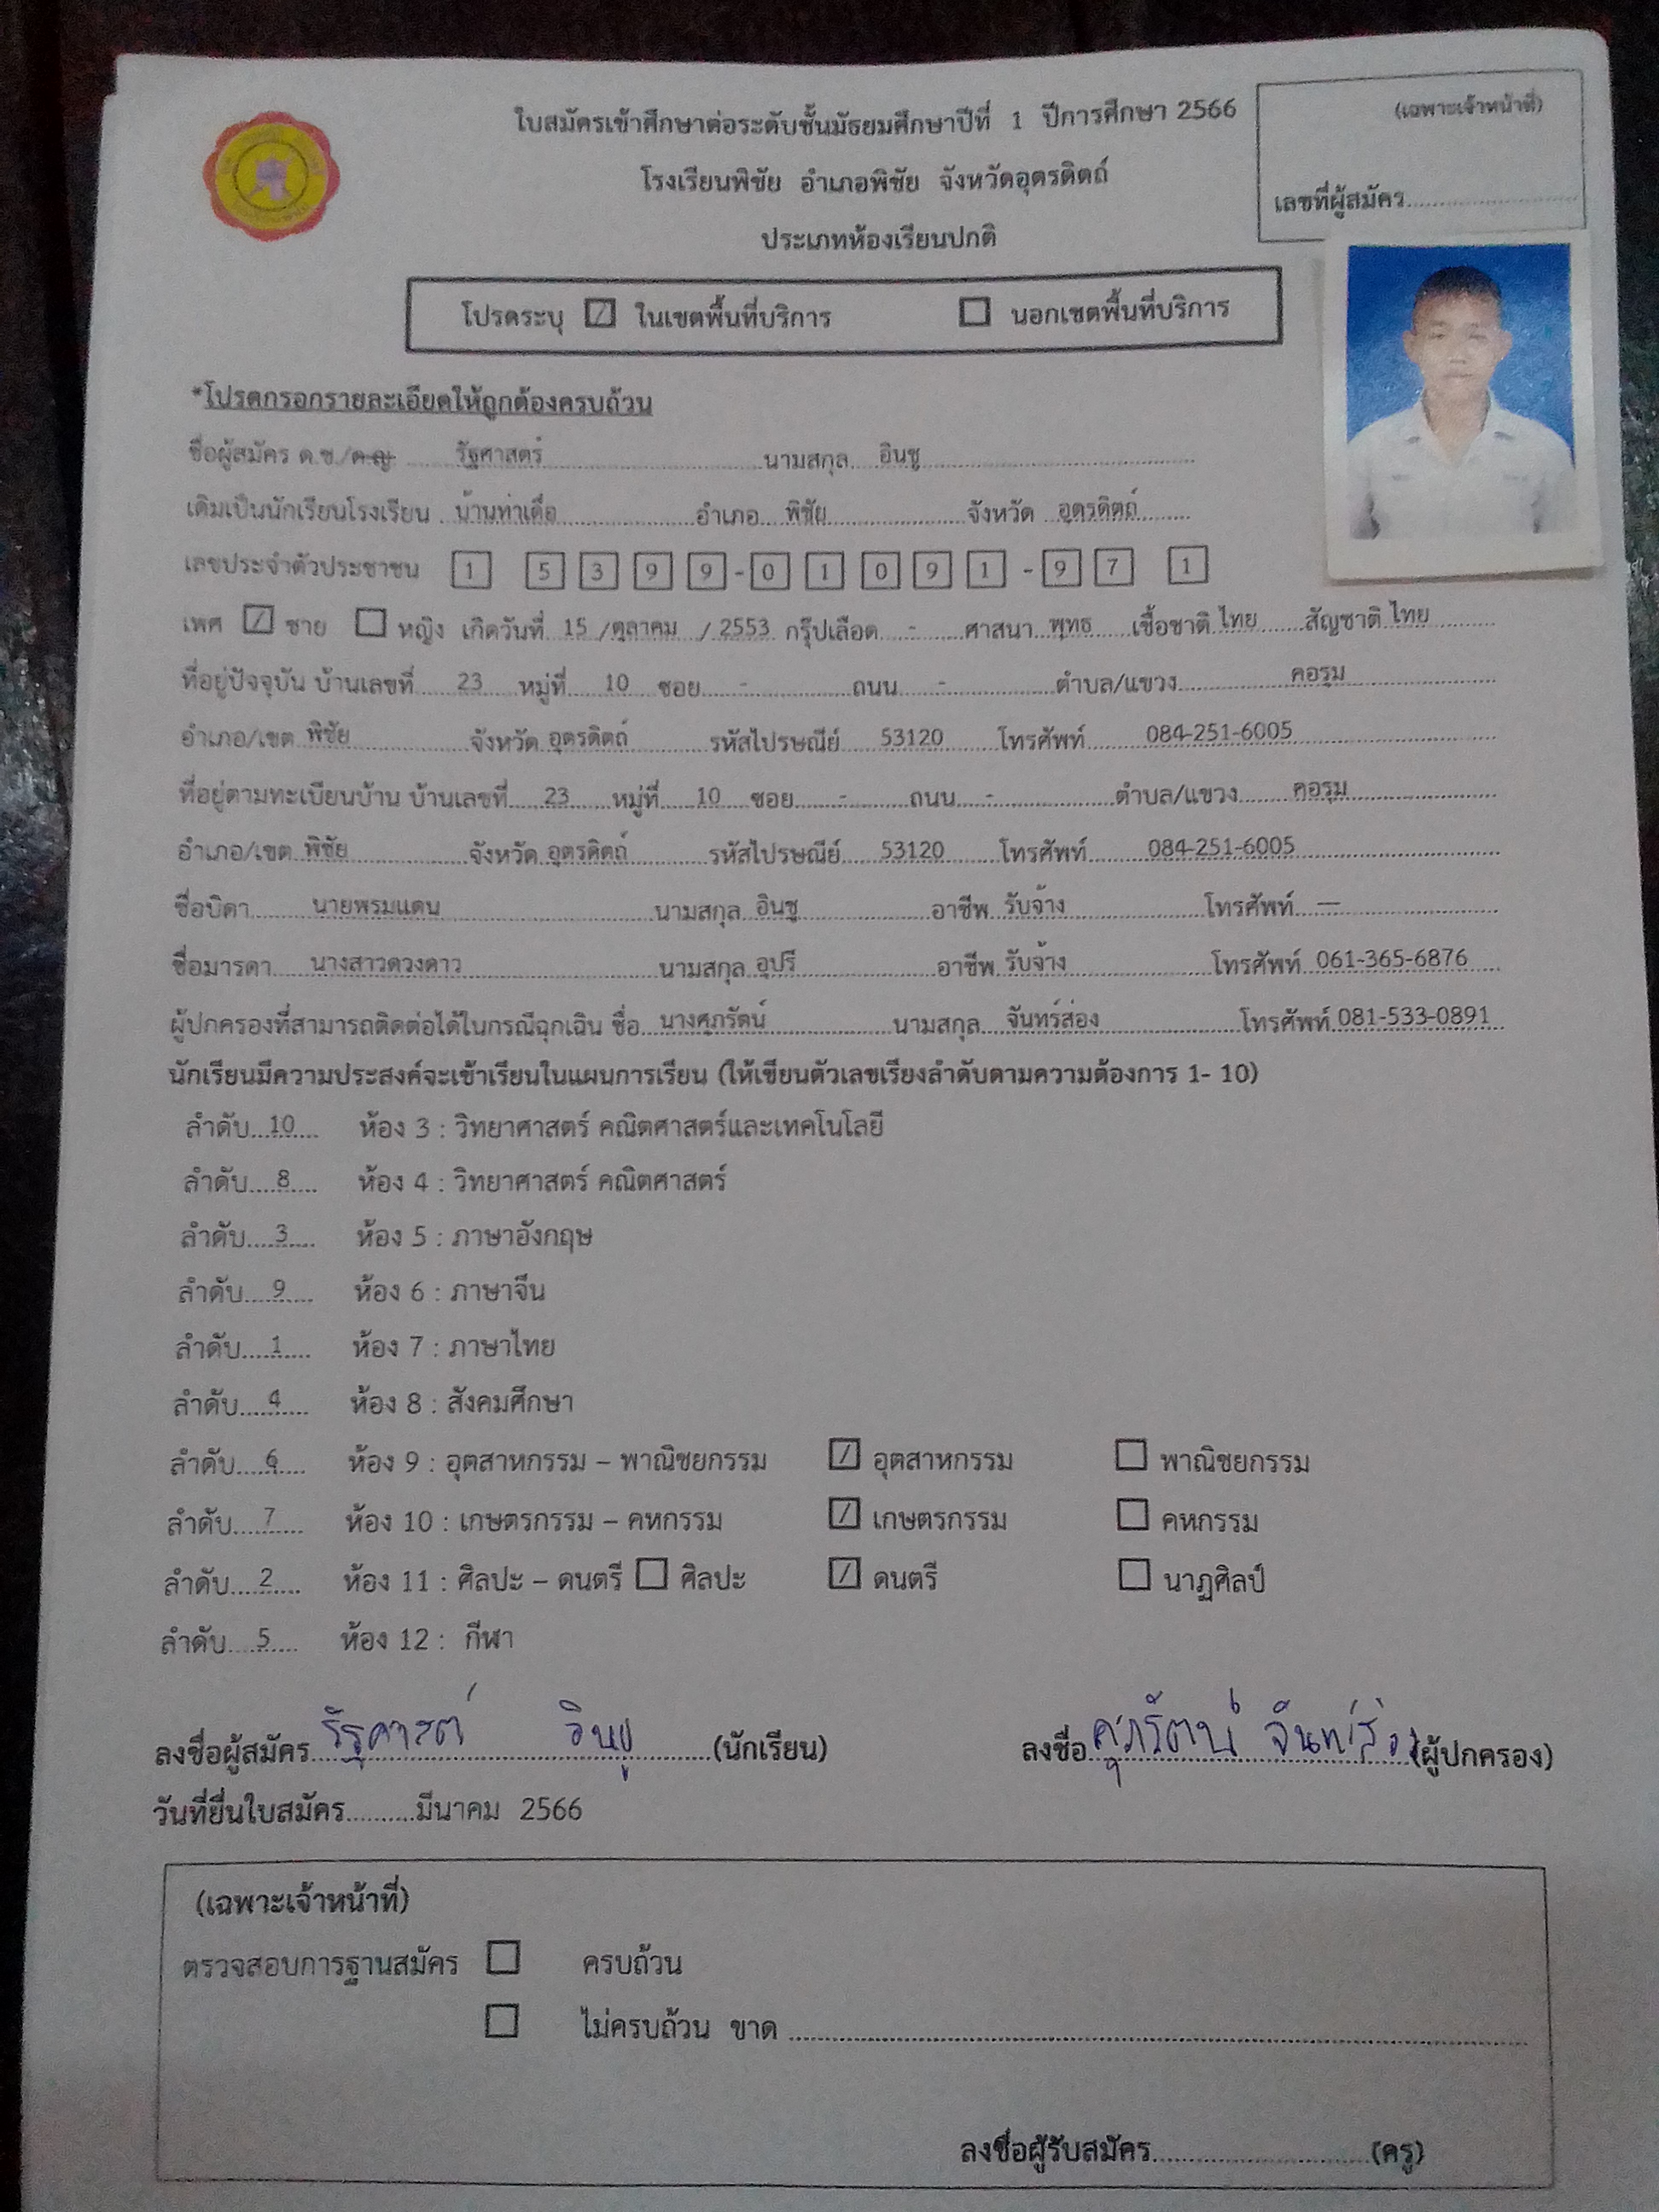 ใบสมัครเข้าศึกษาต่อระดับชั้นมัธยมศึกษาปีที่ 1 ปีการศึกษา 2566
(เฉพาะเจ้าหน้าที่)
โรงเรียนพิชัย อำเภอพิชัย จังหวัดอุตรดิตถ์
เลขที่ผู้สมัคร
ประเภทห้องเรียนปกติ
โปรดระบุ ☑ ในเขตพื้นที่บริการ ☐ นอกเขตพื้นที่บริการ
*โปรดกรอกรายละเอียดให้ถูกต้องครบถ้วน
ชื่อผู้สมัคร ด.ช./ด.ญ. รัฐศาสตร์ นามสกุล อินชู
เดิมเป็นนักเรียนโรงเรียน บ้านท่าเดื่อ อำเภอ พิชัย จังหวัด อุตรดิตถ์
เลขประจำตัวประชาชน 1 5 3 9 9 - 0 1 0 9 1 - 9 7 1
เพศ ☑ ชาย ☐ หญิง เกิดวันที่ 15 /ตุลาคม / 2553 กรุ๊ปเลือด - ศาสนา พุทธ เชื้อชาติ ไทย สัญชาติ ไทย
ที่อยู่ปัจจุบัน บ้านเลขที่ 23 หมู่ที่ 10 ซอย - ถนน - ตำบล/แขวง คอรุม
อำเภอ/เขต พิชัย จังหวัด อุตรดิตถ์ รหัสไปรษณีย์ 53120 โทรศัพท์ 084-251-6005
ที่อยู่ตามทะเบียนบ้าน บ้านเลขที่ 23 หมู่ที่ 10 ซอย - ถนน - ตำบล/แขวง คอรุม
อำเภอ/เขต พิชัย จังหวัด อุตรดิตถ์ รหัสไปรษณีย์ 53120 โทรศัพท์ 084-251-6005
ชื่อบิดา นายพรมแดน นามสกุล อินชู อาชีพ รับจ้าง โทรศัพท์ —
ชื่อมารดา นางสาวดวงดาว นามสกุล อุปรี อาชีพ รับจ้าง โทรศัพท์ 061-365-6876
ผู้ปกครองที่สามารถติดต่อได้ในกรณีฉุกเฉิน ชื่อ นางศุภรัตน์ นามสกุล จันทร์ส่อง โทรศัพท์ 081-533-0891
นักเรียนมีความประสงค์จะเข้าเรียนในแผนการเรียน (ให้เขียนตัวเลขเรียงลำดับตามความต้องการ 1- 10)
ลำดับ 10 ห้อง 3 : วิทยาศาสตร์ คณิตศาสตร์และเทคโนโลยี
ลำดับ 8 ห้อง 4 : วิทยาศาสตร์ คณิตศาสตร์
ลำดับ 3 ห้อง 5 : ภาษาอังกฤษ
ลำดับ 9 ห้อง 6 : ภาษาจีน
ลำดับ 1 ห้อง 7 : ภาษาไทย
ลำดับ 4 ห้อง 8 : สังคมศึกษา
ลำดับ 6 ห้อง 9 : อุตสาหกรรม – พาณิชยกรรม ☑ อุตสาหกรรม ☐ พาณิชยกรรม
ลำดับ 7 ห้อง 10 : เกษตรกรรม – คหกรรม ☑ เกษตรกรรม ☐ คหกรรม
ลำดับ 2 ห้อง 11 : ศิลปะ – ดนตรี ☐ ศิลปะ ☑ ดนตรี ☐ นาฏศิลป์
ลำดับ 5 ห้อง 12 : กีฬา
ลงชื่อผู้สมัคร รัฐศาสตร์ อินชู (นักเรียน) ลงชื่อ ศุภรัตน์ จันทร์ส่อง (ผู้ปกครอง)
วันที่ยื่นใบสมัคร.........มีนาคม 2566
(เฉพาะเจ้าหน้าที่)
ตรวจสอบการฐานสมัคร ☐ ครบถ้วน
☐ ไม่ครบถ้วน ขาด
ลงชื่อผู้รับสมัคร (ครู)